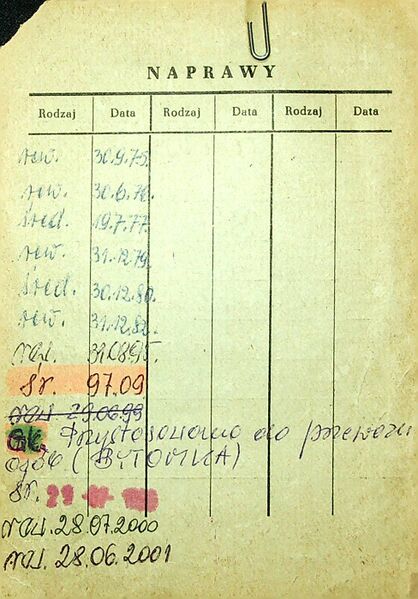 NAPRAWY
Rodzaj Data Rodzaj Data Rodzaj Data
rew. 30.9.75.
rew. 30.6.76.
śred. 19.7.77.
rew. 31.12.79.
śred. 30.12.80.
rew. 31.12.82.
śr. 97.09
29.06.99
Przystosowano do przewozu
osób (BYTOWIZA)
śr.
28.07.2000
28.06.2001